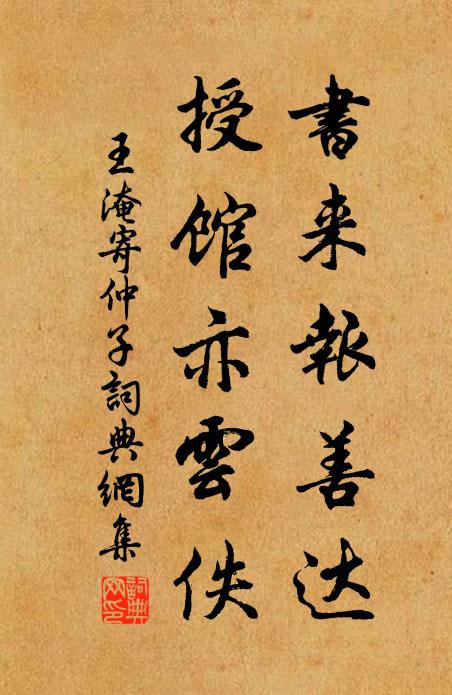 書来報善达
授館亦雲佚
王淹寄仲子詞典網集
詞典網印